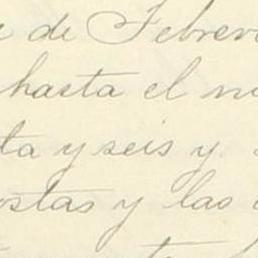 de Febrer
hasta el
ta y seis y
ostas y las